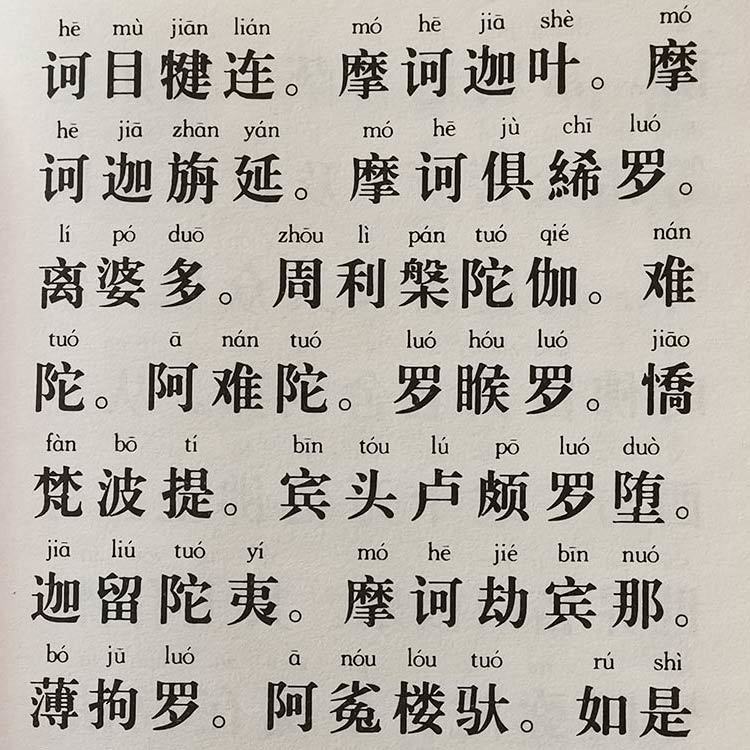 hē mù jiān lián mó hē jiā shè mó
诃目犍连。摩诃迦叶。摩
hē jiā zhān yán mó hē jù chī luó
诃迦旃延。摩诃俱絺罗。
lí pó duō zhōu lì pán tuó qié nán
离婆多。周利槃陀伽。难
tuó ā nán tuó luó hóu luó jiāo
陀。阿难陀。罗睺罗。憍
fàn bō tí bīn tóu lú pō luó duò
梵波提。宾头卢颇罗堕。
jiā liú tuó yí mó hē jié bīn nuó
迦留陀夷。摩诃劫宾那。
bó jū luó ā nóu lóu tuó rú shì
薄拘罗。阿㝹楼驮。如是